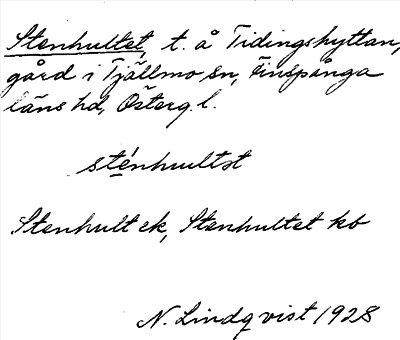 Stenhultet, t. å Tidingshyttan,
gård i Tjällmo sn, Finspånga
läns hd, Österg. l.
sténhultst
Stenhult ek, Stenhultet kb
N. Lindqvist 1928